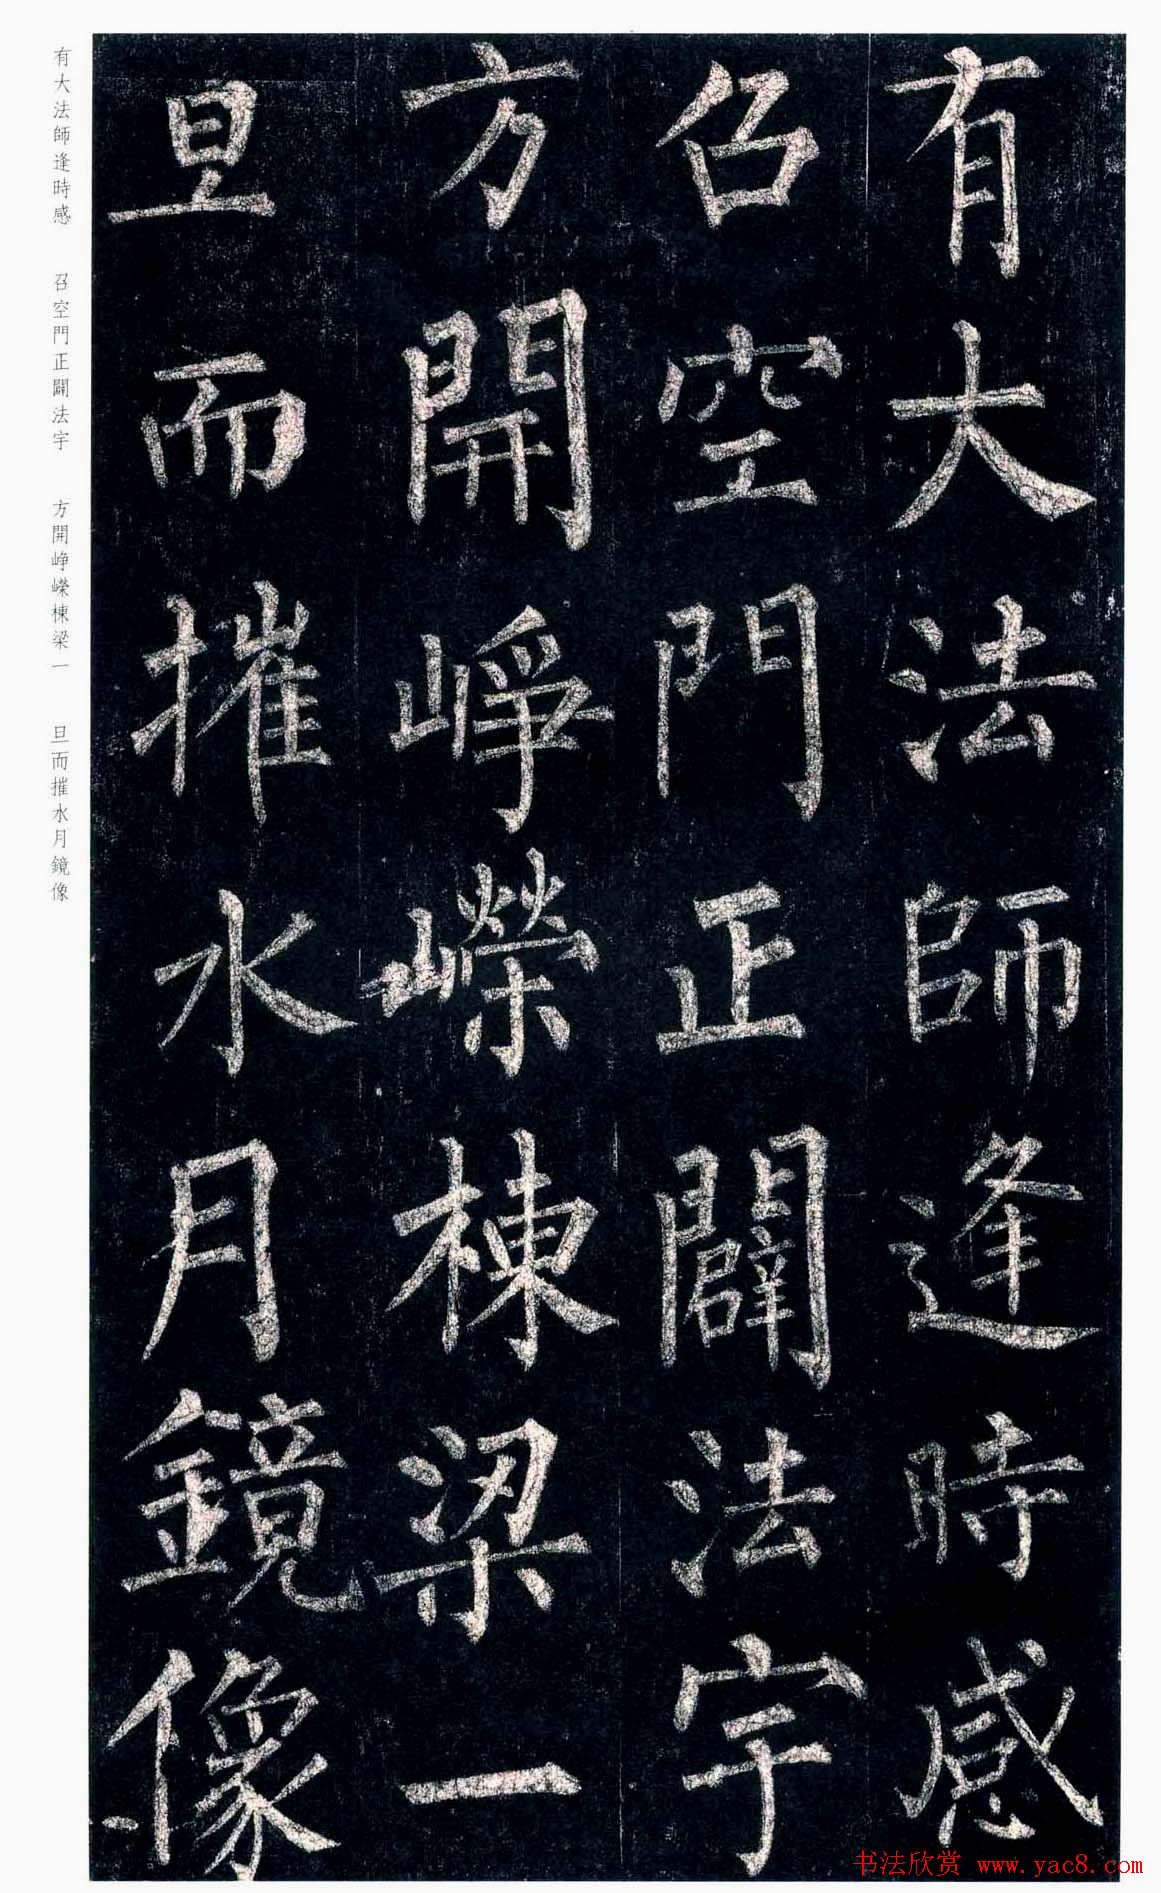 有大法師逢時感
召空門正闢法宇
方開崢嶸棟梁一
旦而摧水月鏡像
有大法師逢時感 召空門正闢法宇 方開崢嶸棟梁一 旦而摧水月鏡像
书法欣赏 www.yac8.com